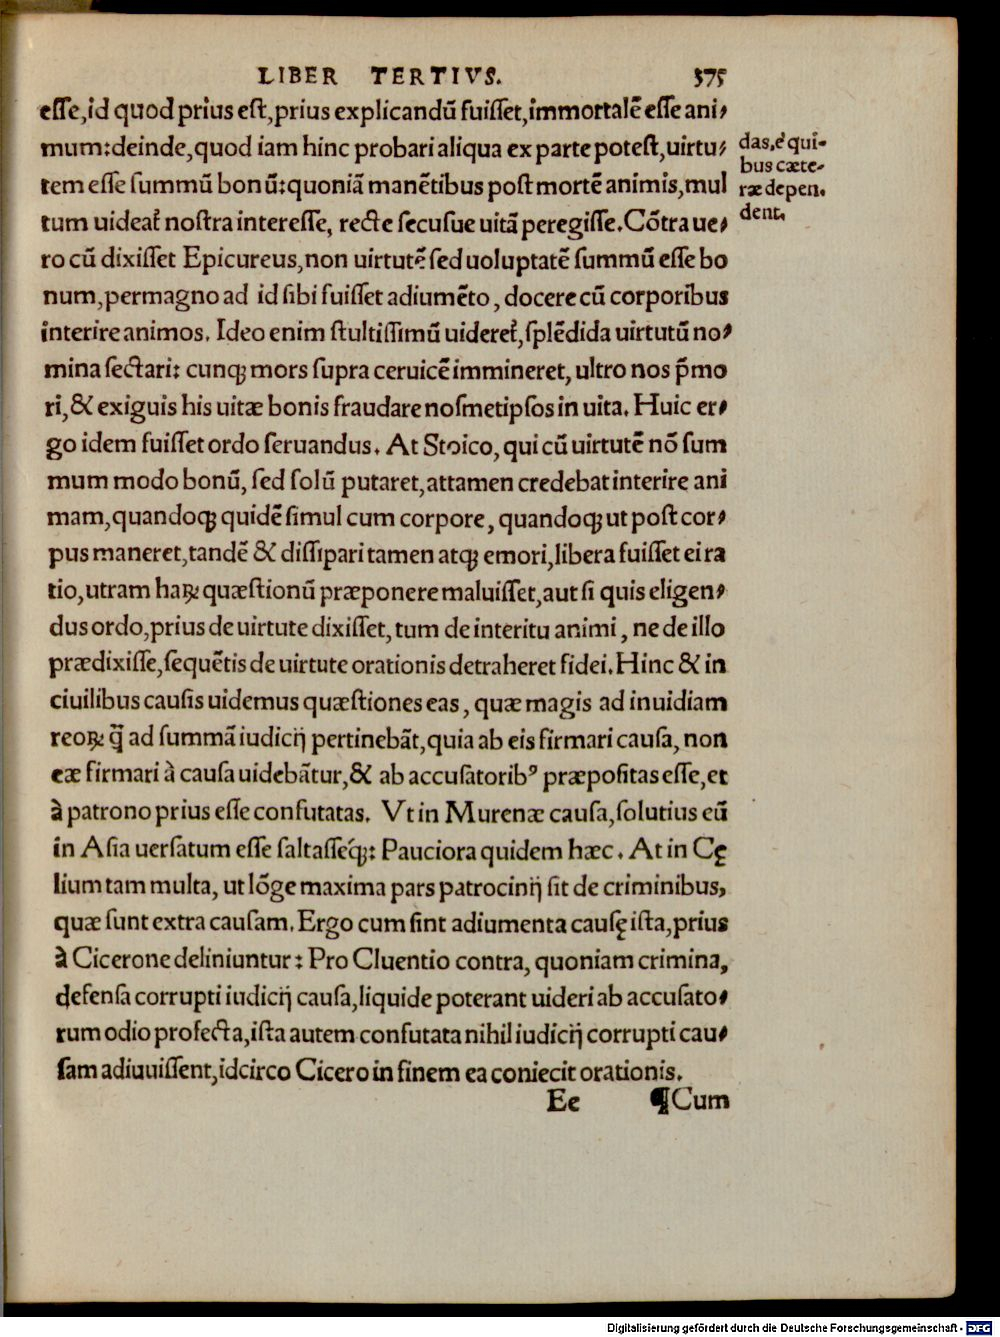 LIBER TERTIVS. 375
esse, id quod prius est, prius explicandũ fuisset, immortalẽ esse ani-
mum: deinde, quod iam hinc probari aliqua ex parte potest, uirtu-
tem esse summũ bonũ: quoniã manẽtibus post mortẽ animis, mul
tum uideat᷑ nostra interesse, recte secusue uitã peregisse. Cõtra ue-
ro cũ dixisset Epicureus, non uirtutẽ sed uoluptatẽ summũ esse bo
num, permagno ad id sibi fuisset adiumẽto, docere cũ corporibus
interire animos. Ideo enim stultissimũ uideret᷑, splẽdida uirtutũ no-
mina sectari: cunqꝫ mors supra ceruicẽ immineret, ultro nos p̃mo
ri, & exiguis his uitæ bonis fraudare nosmetipsos in uita. Huic er-
go idem fuisset ordo seruandus. At Stoico, qui cũ uirtutẽ nõ sum
mum modo bonũ, sed solũ putaret, attamen credebat interire ani
mam, quandoqꝫ quidẽ simul cum corpore, quandoqꝫ ut post cor-
pus maneret, tandẽ & dissipari tamen atqꝫ emori, libera fuisset ei ra
tio, utram haꝝ quæstionũ præponere maluisset, aut si quis eligen-
dus ordo, prius de uirtute dixisset, tum de interitu animi, ne de illo
prædixisse, sequẽtis de uirtute orationis detraheret fidei. Hinc & in
ciuilibus causis uidemus quæstiones eas, quæ magis ad inuidiam
reoꝝ q̃ ad summã iudicij pertinebãt, quia ab eis firmari causa, non
eæ firmari à causa uidebãtur, & ab accusatoribꝰ præpositas esse, et
à patrono prius esse confutatas. Vt in Murenæ causa, solutius eũ
in Asia uersatum esse saltasséqꝫ: Pauciora quidem hæc. At in Cę
lium tam multa, ut lõge maxima pars patrocinij sit de criminibus,
quæ sunt extra causam. Ergo cum sint adiumenta causę ista, prius
à Cicerone deliniuntur: Pro Cluentio contra, quoniam crimina,
defensa corrupti iudicij causa, liquide poterant uideri ab accusato-
rum odio profecta, ista autem confutata nihil iudicij corrupti cau-
sam adiuuissent, idcirco Cicero in finem ea coniecit orationis.
Ee ¶Cum
das, è qui-
bus cæte-
ræ depen-
dent.
Digitalisierung gefördert durch die Deutsche Forschungsgemeinschaft - DFG